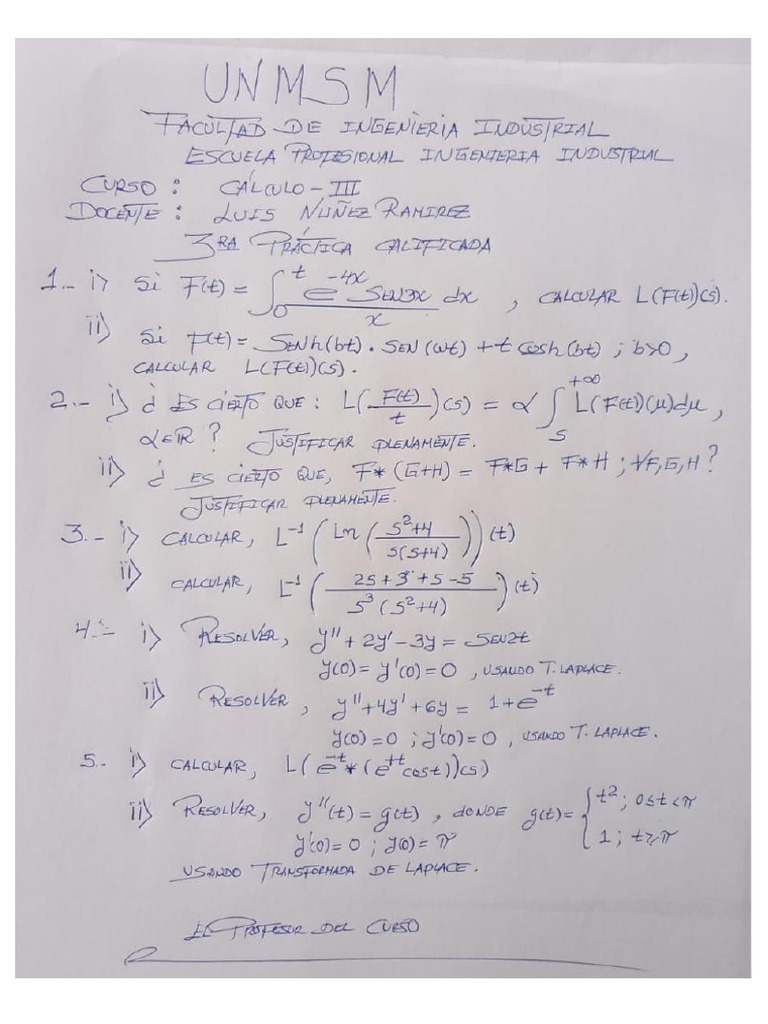 UNMSM
FACULTAD DE INGENIERIA INDUSTRIAL
ESCUELA PROFESIONAL INGENIERIA INDUSTRIAL
CURSO : CÁLCULO - III
DOCENTE : LUIS NUÑEZ RAMIREZ
3RA PRÁCTICA CALIFICADA
1.- i) Si F(t) = ∫₀ᵗ (e^{-4x} SEN3x)/x dx , CALCULAR L(F(t))(s).
ii) Si F(t) = SENh(bt) · SEN(wt) + t cosh(bt) ; b>0 ,
CALCULAR L(F(t))(s).
2.- i) ¿ ES CIERTO QUE : L(F(t)/t)(s) = α ∫_S^{+∞} L(F(t))(μ)dμ ,
α∈ℝ ? JUSTIFICAR PLENAMENTE.
ii) ¿ ES CIERTO QUE, F*(G+H) = F*G + F*H ; ∀F,G,H ?
JUSTIFICAR PLENAMENTE.
3.- i) CALCULAR, L⁻¹( Ln( (s²+4)/(s(s+4)) ) )(t)
ii) CALCULAR, L⁻¹( (2s+3+s-5)/(s³(s²+4)) )(t)
4.- i) RESOLVER, y''+2y'-3y = SEN2t
y(0) = y'(0) = 0 , USANDO T. LAPLACE.
ii) RESOLVER , y''+4y'+6y = 1+e^{-t}
y(0) = 0 ; y'(0) = 0 , USANDO T. LAPLACE.
5.- i) CALCULAR, L(e^{-t}*(e^{tt} cost))(s)
ii) RESOLVER, y''(t) = g(t) , DONDE g(t) = { t² ; 0≤t<π
y'(0) = 0 ; y(0) = π 1 ; t≥π
USANDO TRANSFORMADA DE LAPLACE.
EL PROFESOR DEL CURSO